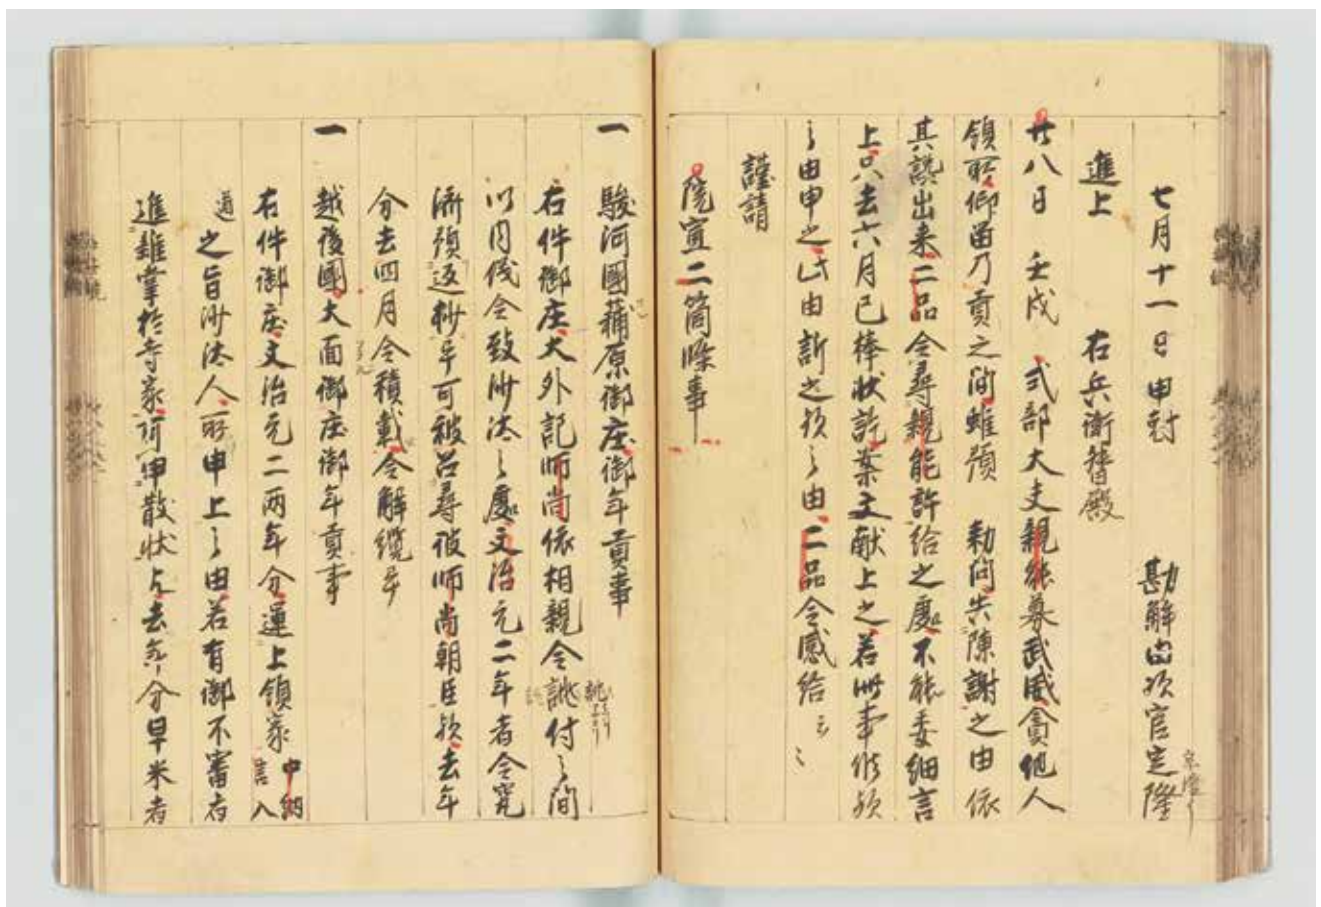 七月十一日申尅
勘解由次官定隆
進上 右兵衛督殿
廿八日 壬戌 式部大夫親能募武威貪他人
領所仰留乃貢之間雖預 勅問先陳謝之由依
其讒出来二品令尋親能許給之處不能委細言
上只去六月已捧状許案文献上之若此事欤
之由申之此由許之欤之由二品令感給云々
謹請
院宣二箇條事
一 駿河國蒲原御庄御年貢事
右件御庄大外記師尚依相親令誂付之間
以同儀令致沙汰之處文治元二年者令究
濟預返抄畢可被召尋彼師尚朝臣欤去年
分去四月令積載令解纜畢
一 越後國大面御庄御年貢事
右件御庄文治元二両年分運上領家 中納言入
道 之旨沙汰人所申上之由若有御不審者
進雑掌於寺家可申散状与去年分早米者